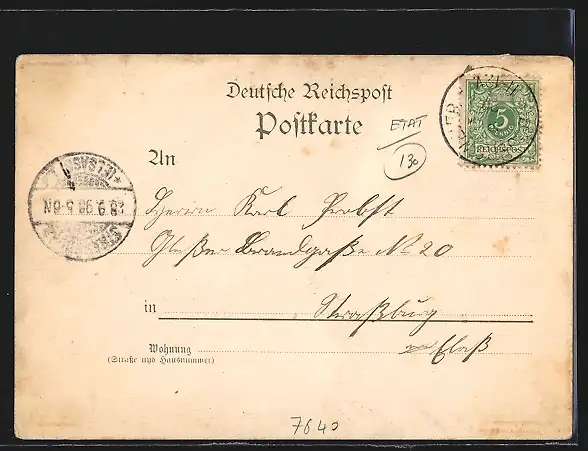 Deutsche Reichspost
Postkarte
ETAT
130
5
REICHSPOST
An
Herrn Karl Probst
Brandgaße No 20
in Straßburg
Elsaß
Wohnung
(Straße und Hausnummer)
7640